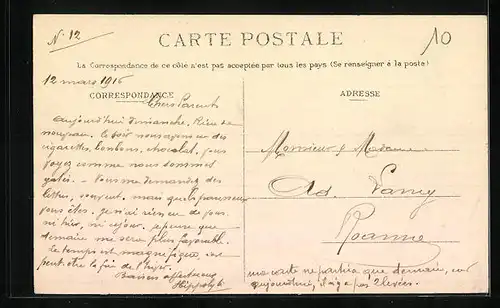 N° 12
10
CARTE POSTALE
La Correspondance de ce côté n'est pas acceptée par tous les pays (Se renseigner à la poste)
12 mars 1916
CORRESPONDANCE
Chers Parents
Aujourd'hui Dimanche. Rien de
nouveau. Le soir nous avons eu des
cigarettes, bonbons, chocolat, vous
voyez comme nous sommes
gâtés. - Vous me demandez des
lettres, souvent, mais que
vous êtes. Je n'ai rien eu de vous
ni hier, ni ce jour, je pense que
demain me sera plus favorable.
Le temps est magnifique, ce
peut être la fin de l'hiver.
Baisers affectueux
Hippolyte
ADRESSE
Monsieur & Madame
Ad
Roanne
ma carte ne partira que demain, car
aujourd'hui, il n'y a pas 2 levées.